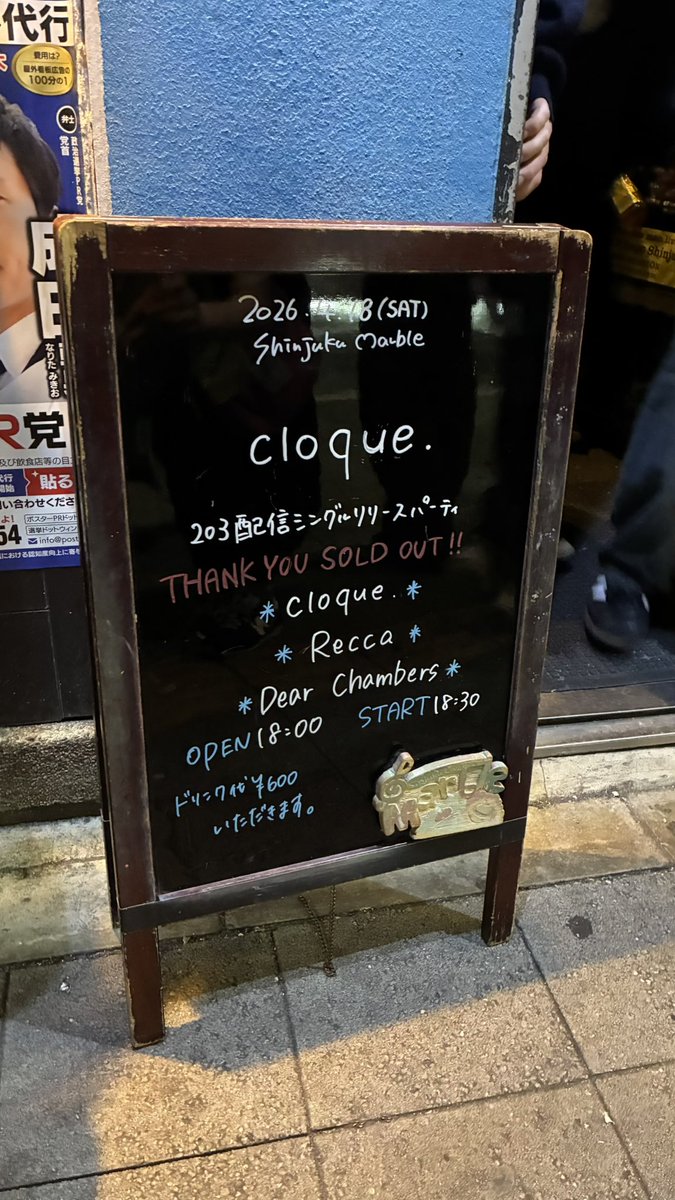 代行
費用は?
屋外看板広告の
100分の1
弁士
政治選挙PR党
党首
成田
なりたみきお
R党
及び飲食店等の目
代行
開始
貼る
い合わせくださ
よ!
54
ポスターPRドット
選挙ドットウィン
info@post
における認知度向上に寄
2026.4.18(SAT)
Shinjuku Marble
cloque.
203配信シングルリリースパーティ
THANK YOU SOLD OUT!!
*cloque.*
*Recca*
*Dear Chambers*
OPEN 18:00 START 18:30
ドリンク代¥600
いただきます。
Marble